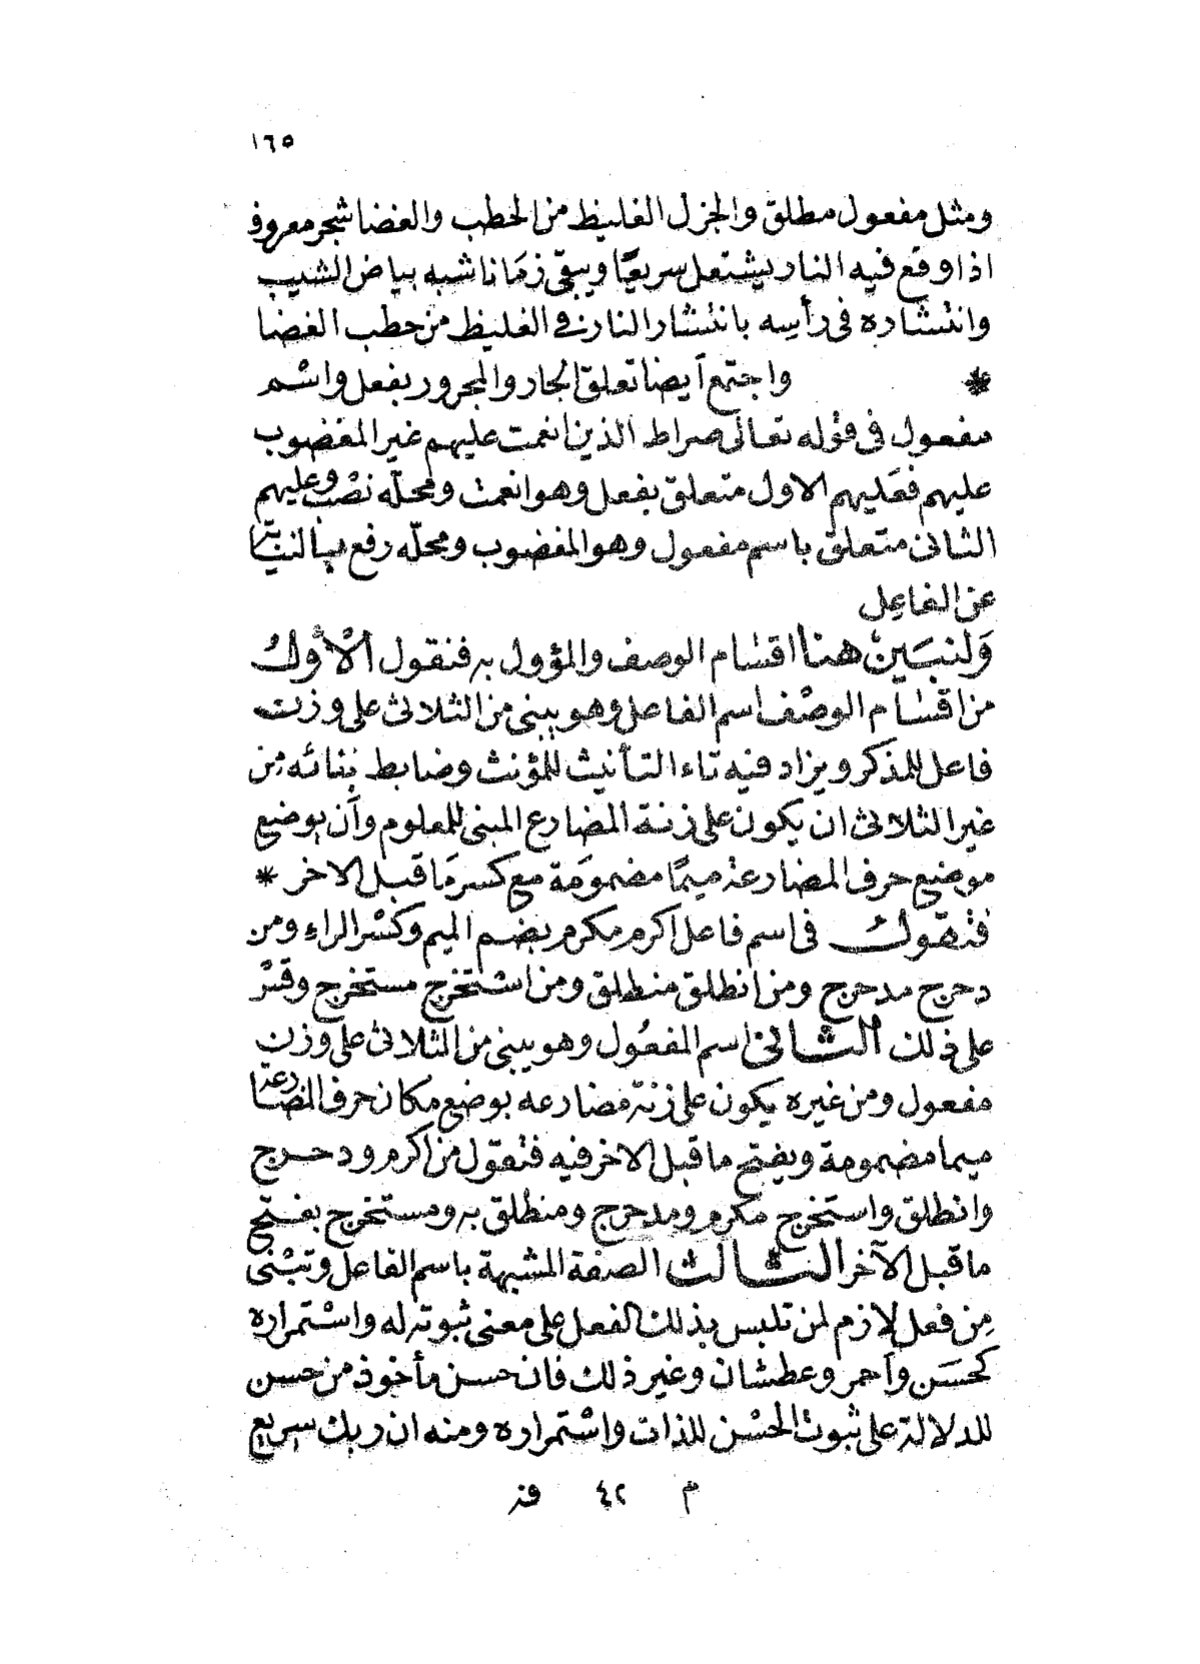 ١٦٥
ومثل مفعول مطلق والجزل الغليظ من الحطب والغضا شجر معروف
اذا وقع فيه النار يشتعل سريعًا ويبقى زمَانا شبه بياض الشيب
وانتشاره فى رأسِه بانتشار النار فى الغليظ من حطب الغضا
* واجتمع اَيضا تعلق الجار والمجرور بفعل واسْم
مفعول فى قوله تعالى صراط الذين انعمت عليهم غير المغضوب
عليهم فعَليهم الاول متعلق بفعل وهو انعمت ومحلّه نصْب وعليهم
الثانى متعلق باسم مفعول وهو المغضوب ومحلّه رفع بالنيابة
عن الفاعِل
وَلنبَيِنْ هنا اقسَام الوصف والمؤول به فنقول الْأَوْل
من اقسَام الوصْف اسم الفاعل وهو يبنى من الثلاثى على وزن
فاعل للمذكر ويزاد فيه تاء التأنيث للمؤنث وضابط بنائه مِن
غير الثلاثى ان يكون على زنة المضارع المبنى للمعلوم وأن يوضع
موضع حرف المضارعة ميمًا مضمومَة مع كسر مَا قبل الاخر *
فنقول فى اسم فاعل اكرم مكرم بضم الميم وكسْر الراءِ ومن
دحرج مدحرج ومن انطلق منطلق ومن استخرج مستخرج وقسْ
على ذلك الثانى اسم المفعُول وهو يبنى من الثلاثى على وزن
مفعول ومن غيره يكون على زنة مضارعه بوضع مكان حرف المضارعة
ميما مضمومة ويفتح ما قبل الاخر فيه فتقول من اكرم ودحرج
وانطلق واستخرج مكرم ومدحرج ومنطلق به ومستخرج بفتح
ما قبل الآخر الثالث الصفة المشبهة باسم الفاعل وتبْنى
مِن فعل لازم لمن تلبس بذلك الفعل على معنى ثبوته له واسْتمراره
كحَسَن وأحمر وعطشان وغير ذلك فان حسن مأخوذ من حسن
للدلالة على ثبوت الحسْن للذات واسْتمراره ومنه ان ربك سريع
م ٤٢ فر